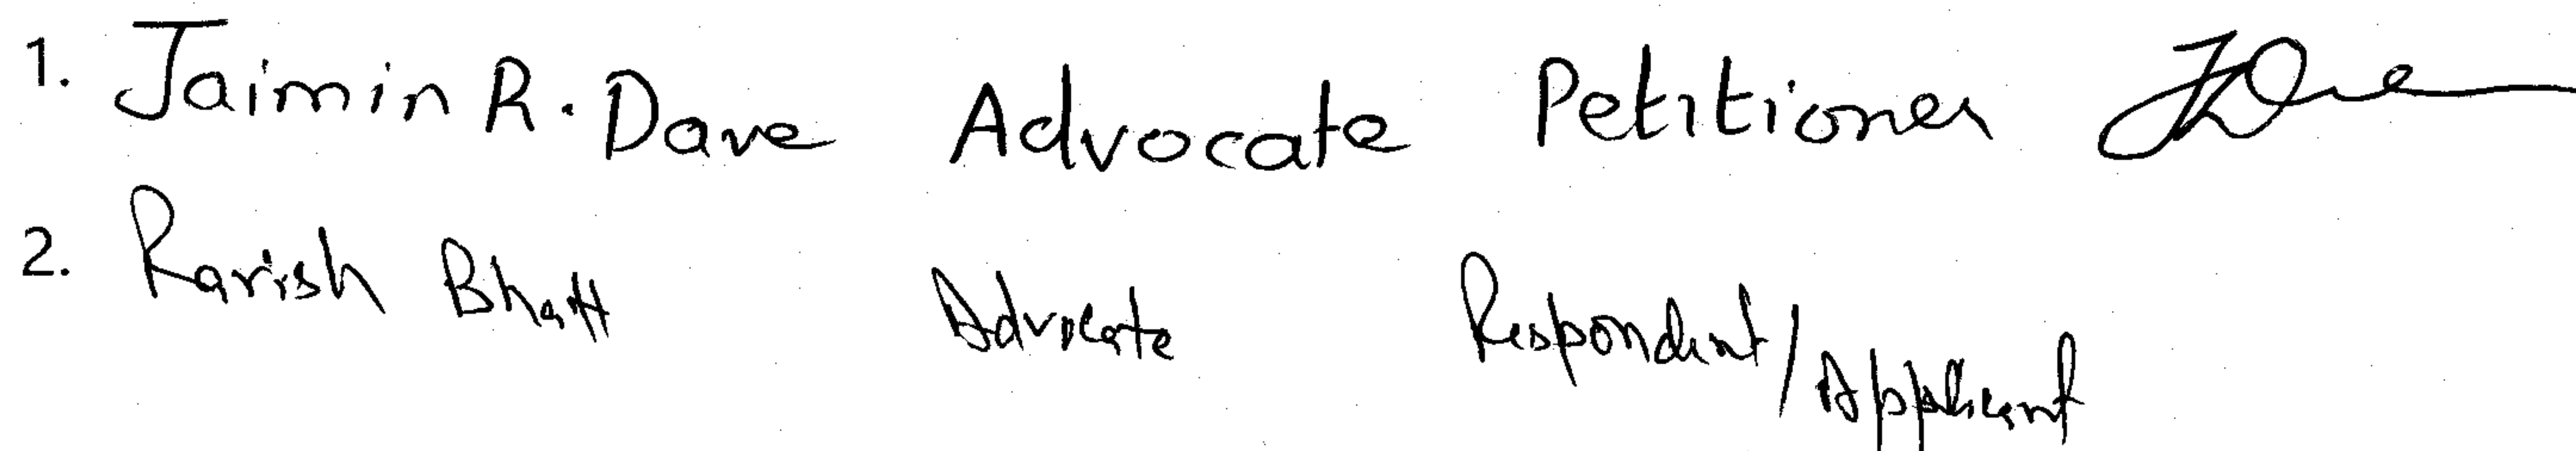 1. Jaimin R. Dave Advocate Petitioner
2. Ravish Bhatt Advocate Respondent/Applicant